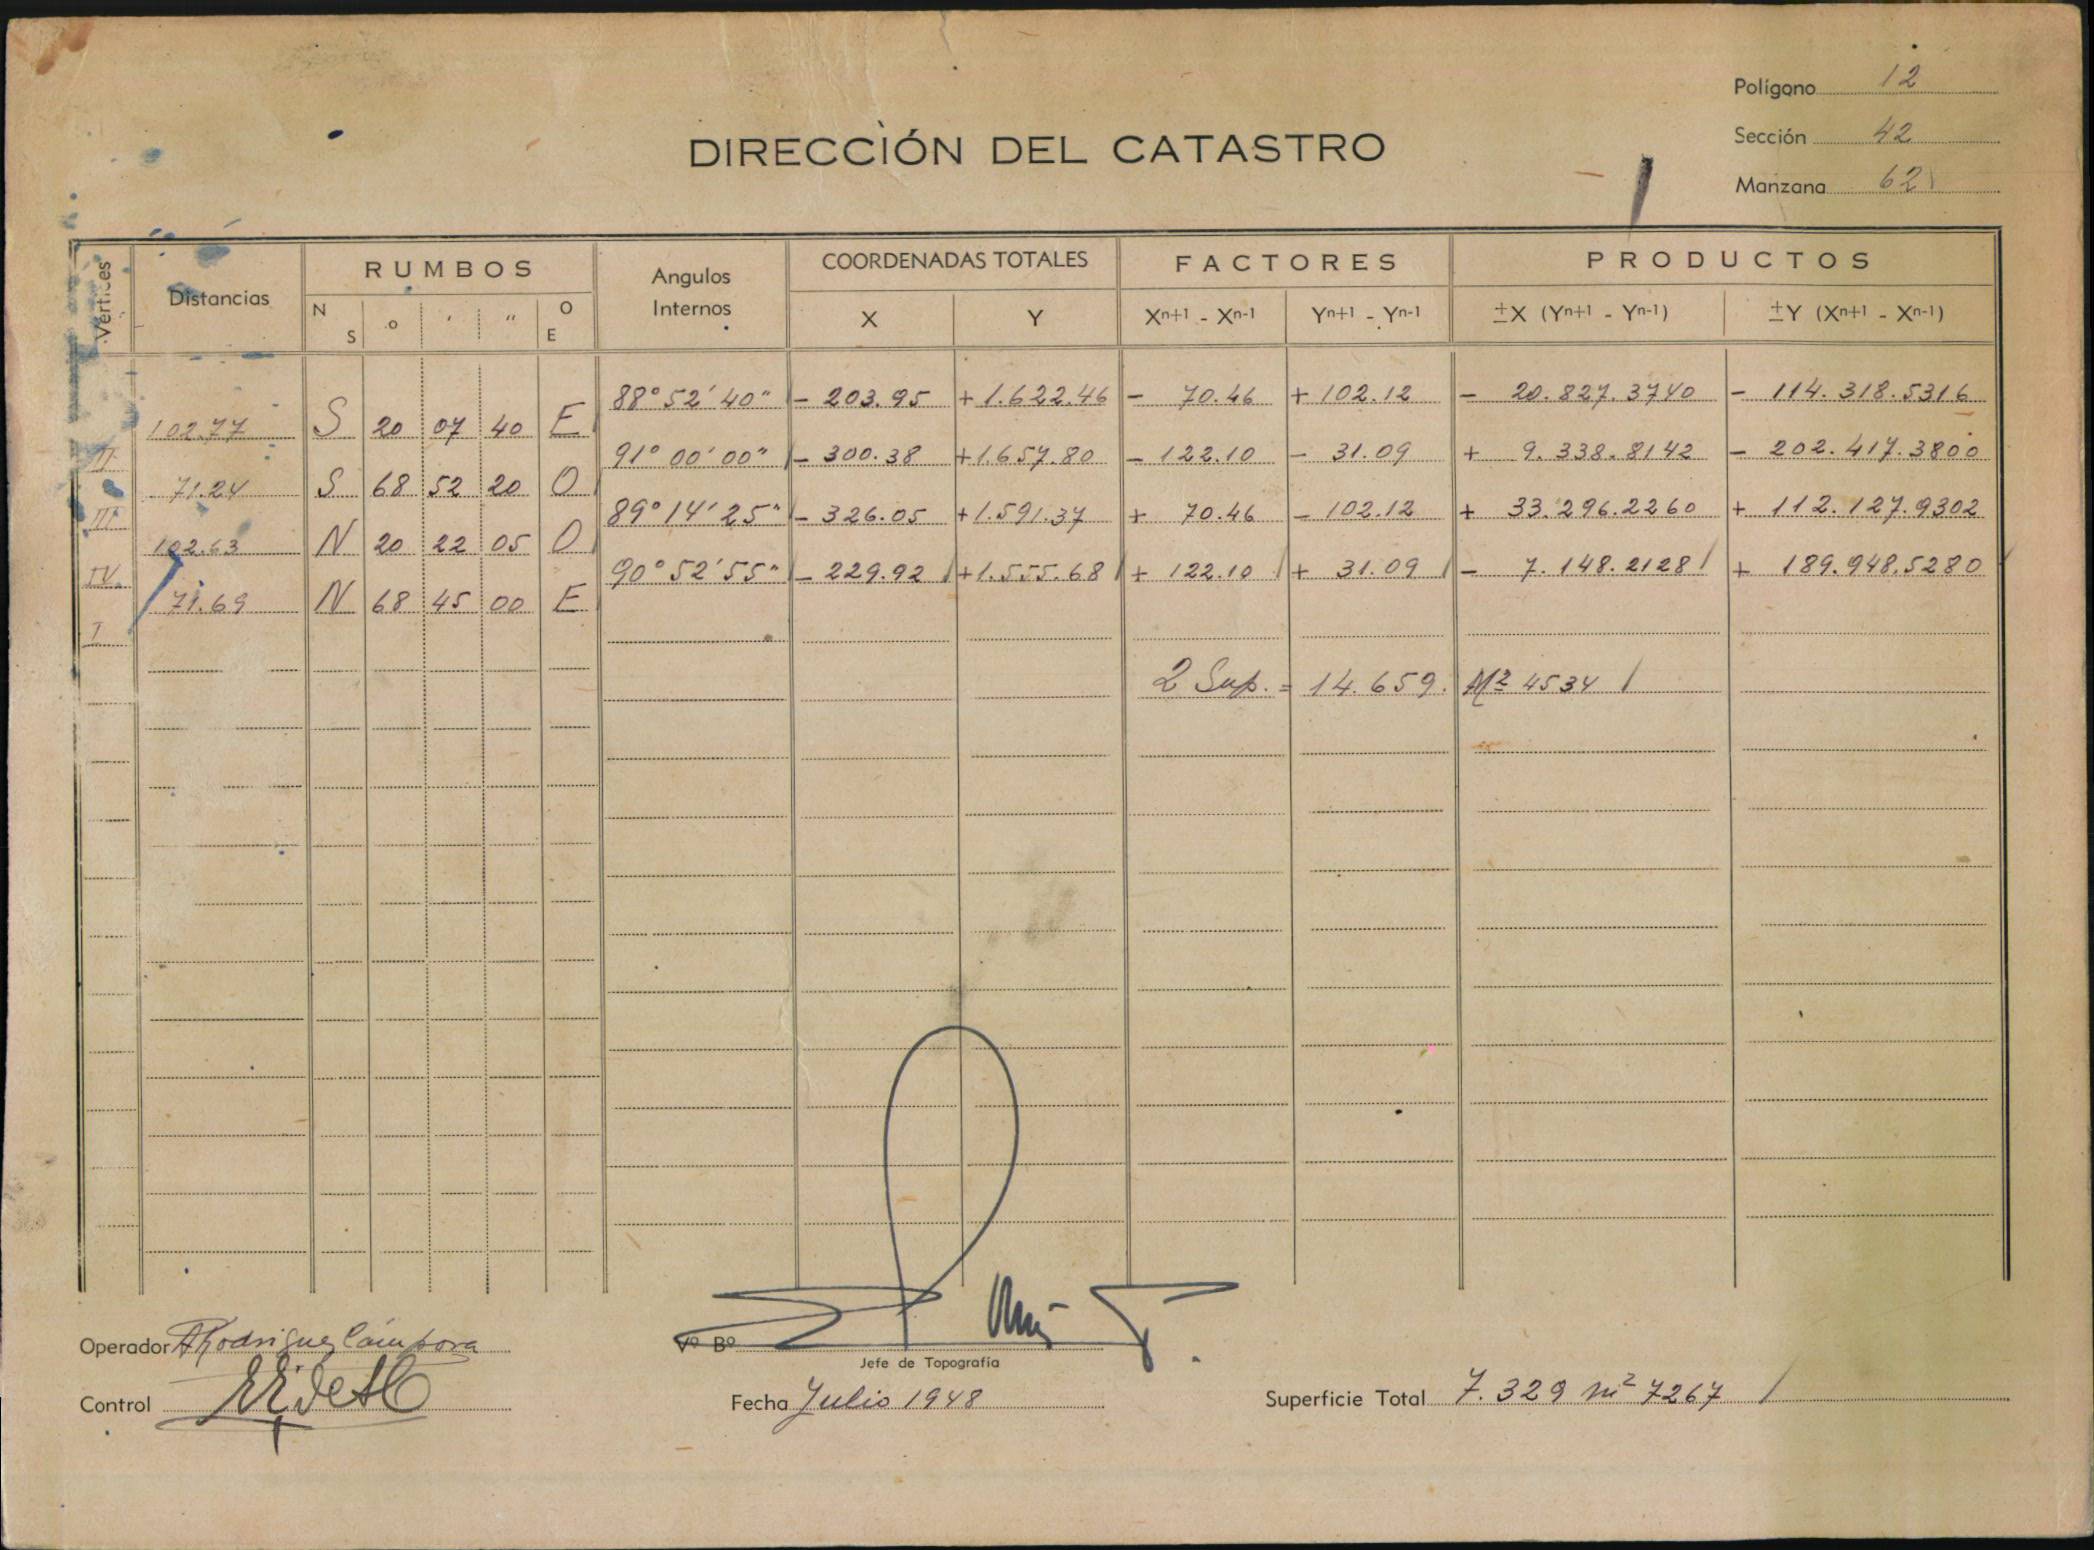 Polígono 12
Sección 42
Manzana 62
DIRECCIÓN DEL CATASTRO
Vértices Distancias RUMBOS Angulos Internos COORDENADAS TOTALES FACTORES PRODUCTOS
N S o ' " O E X Y Xn+1 - Xn-1 Yn+1 - Yn-1 ±X (Yn+1 - Yn-1) ±Y (Xn+1 - Xn-1)
88° 52' 40" - 203.95 + 1.622.46 - 70.46 + 102.12 - 20.827.3740 - 114.318.5316
102.77 S 20 07 40 E
II 91° 00' 00" - 300.38 + 1.657.80 - 122.10 - 31.09 + 9.338.8142 - 202.417.3800
71.24 S 68 52 20 O
III 89° 14' 25" - 326.05 + 1.591.37 + 70.46 - 102.12 + 33.296.2260 + 112.127.9302
102.63 N 20 22 05 O
IV 90° 52' 55" - 229.92 + 1.555.68 + 122.10 + 31.09 - 7.148.2128 + 189.948.5280
71.69 N 68 45 00 E
I
2 Sup. = 14.659. M2 4534
Operador ARodriguez Cámpora
Vº Bº
Jefe de Topografía
Control
Fecha Julio 1948
Superficie Total 7.329 m2 7267